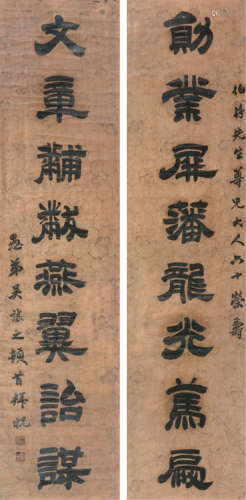 勛業屏藩龍光
伯先生尊兄大人六十榮壽
文章黼黻燕翼詒謀
愚弟吳讓之頓首拜祝